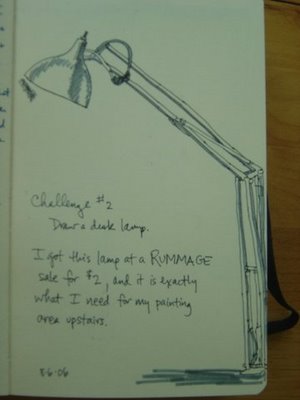 Challenge #2
Draw a desk lamp.
I got this lamp at a RUMMAGE
sale for $2, and it is exactly
what I need for my painting
area upstairs.
8·6·06